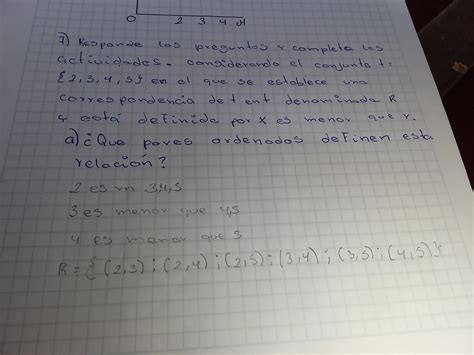 0 2 3 4 A
7) Responde las preguntas y completa las
actividades. considerando el conjunto t=
{2,3,4,5} en el que se establece una
correspondencia de t en t denominada R
y está definida por x es menor que y.
a) ¿Que pares ordenados definen esta
relación?
2 es m 3,4,5
3 es menor que 4,5
4 es menor que 5
R = { (2,3) ; (2,4) ; (2,5) ; (3,4) ; (3,5) ; (4,5) }